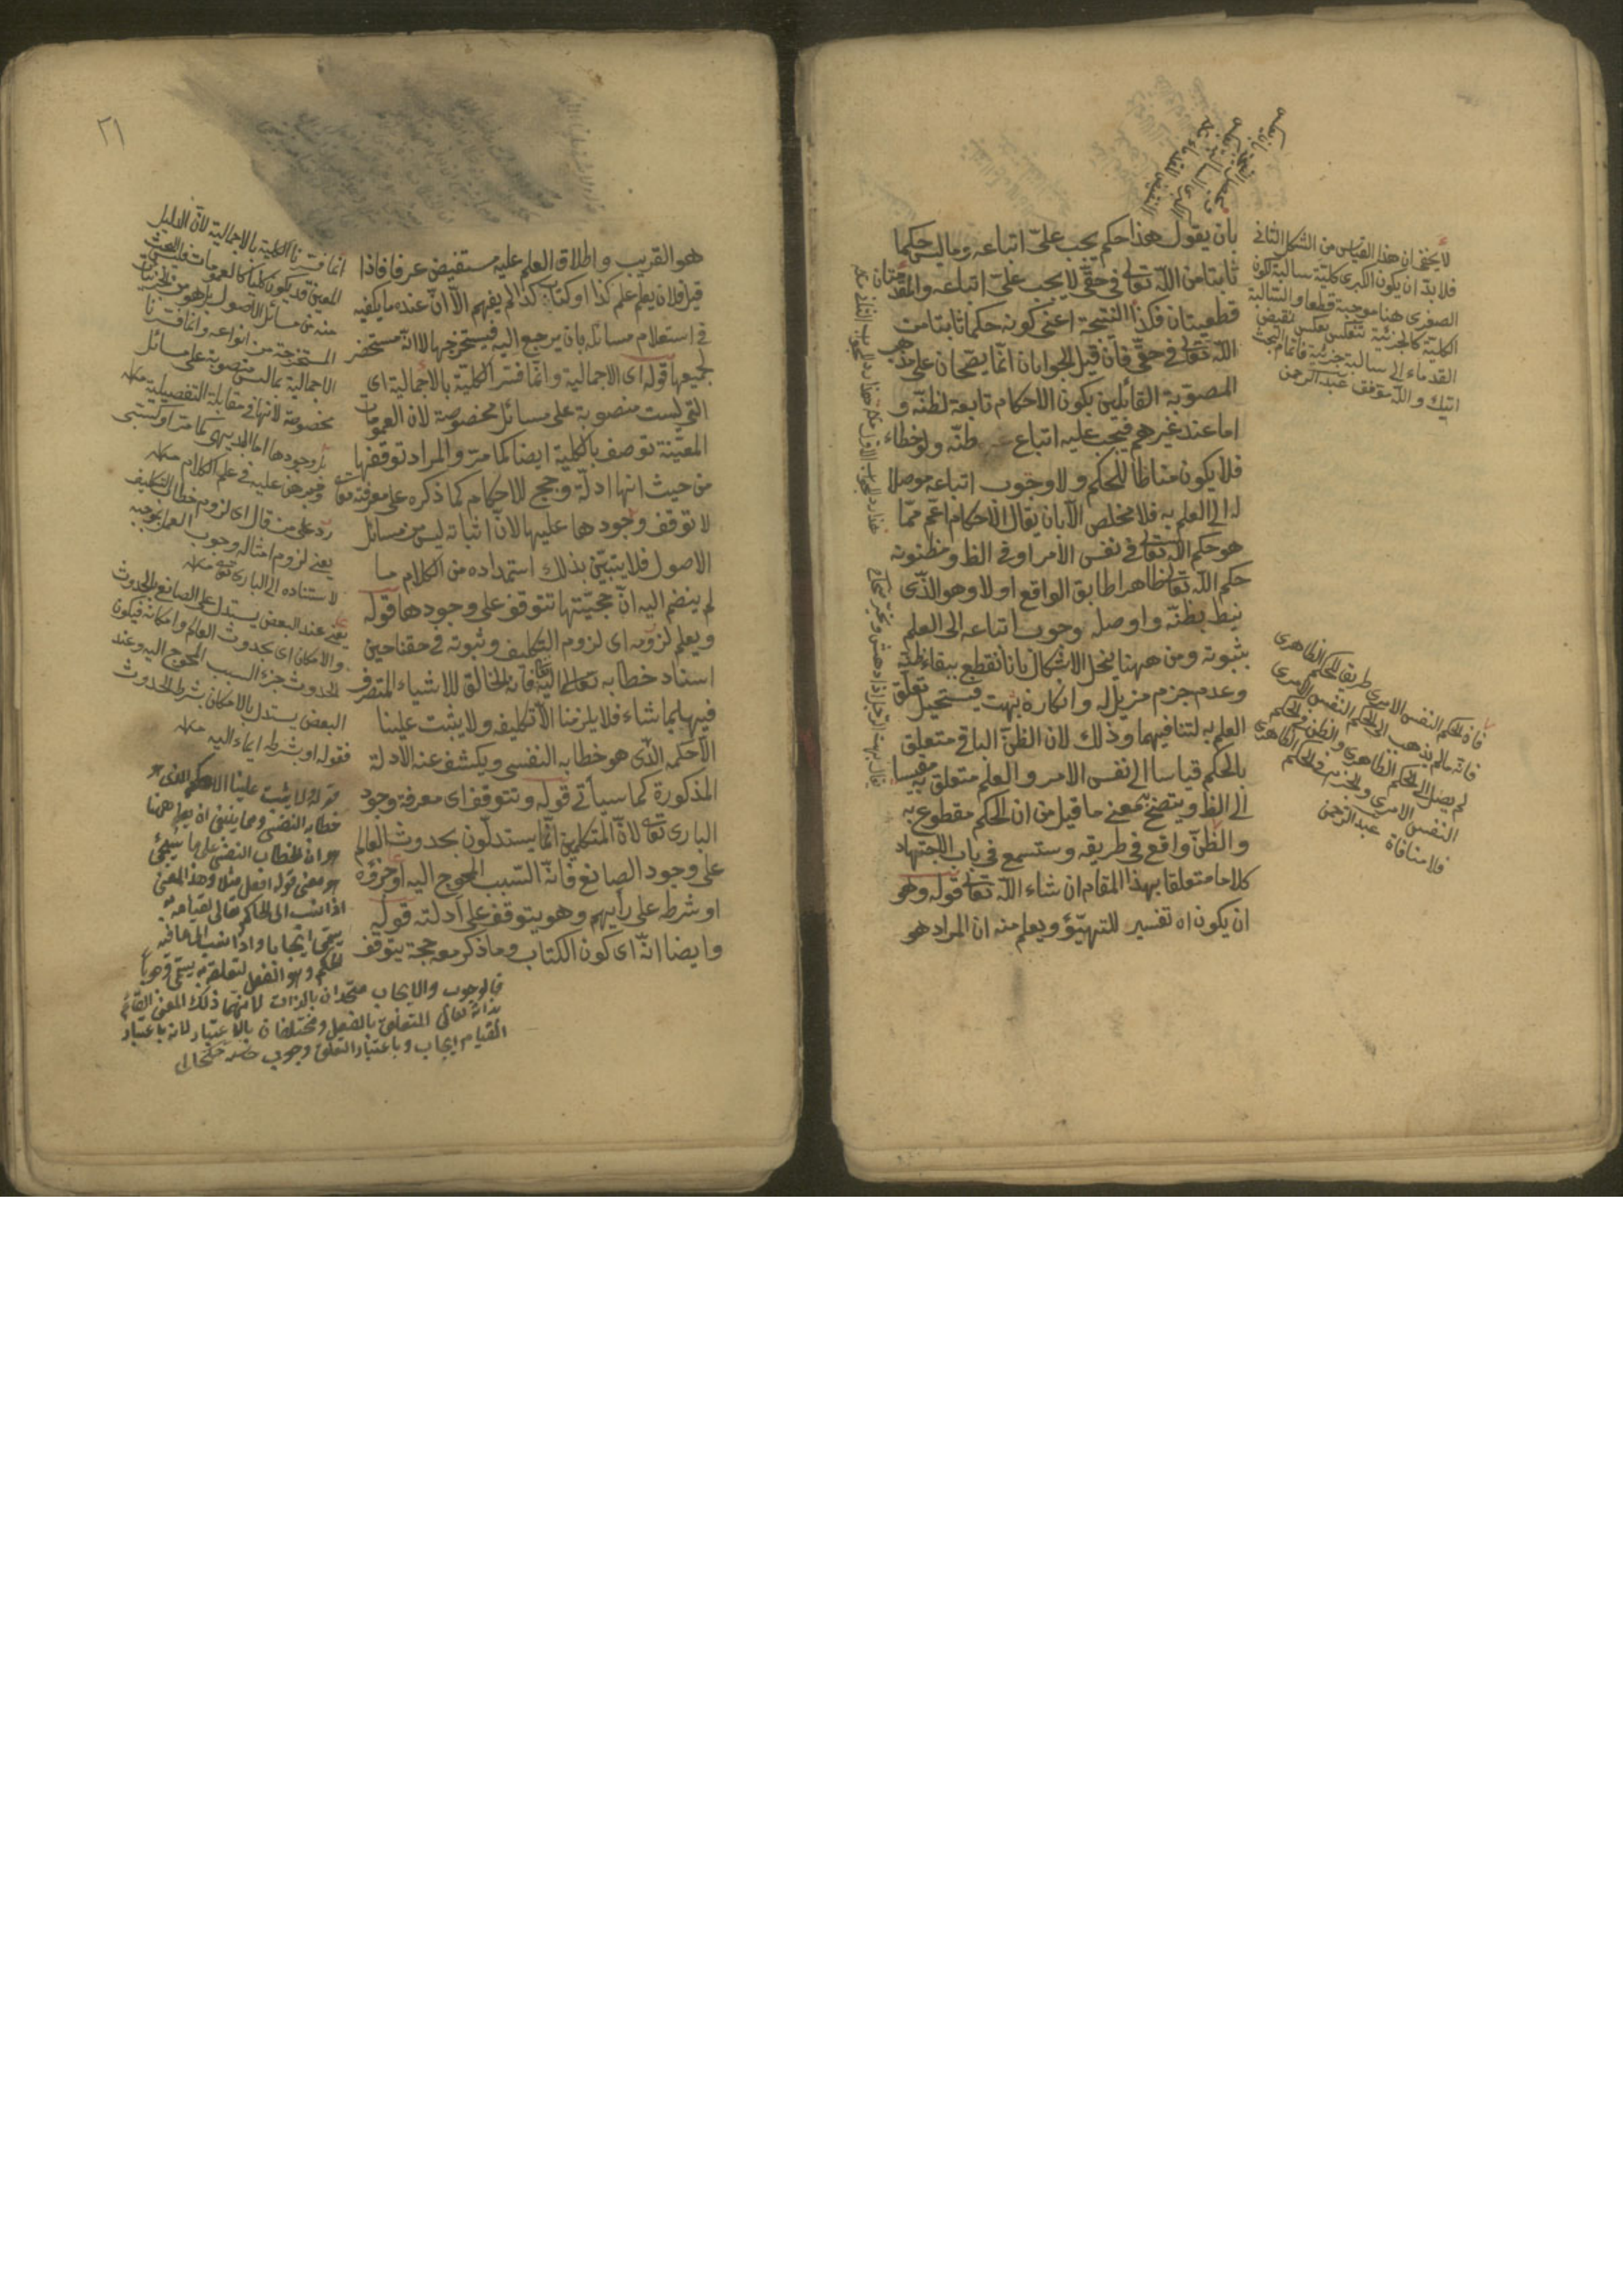 بان يقول هذا حكم يجب علىّ اتباعه وما ليس حكما
ثابتا من اللّه تعالى فى حقّى لا يجب علىّ اتباعه والمقدّمتان
قطعيتان فكذا النتيجة اعنى كونه حكما ثابتا من
اللّه تعالى فى حقّى فان قيل الجوابان انّما يصحان على مذهب
المصوّبة القائلين بكون الاحكام تابعة لظنّه و
اما عند غيرهم فيجب عليه اتباع ظنّه ولو خطاء
فلا يكون مناطا للحكم ولا وجوب اتباعه موصلا
له الى العلم به فلا مخلص الّا بان يقال الاحكام اعمّ ممّا
هو حكم اللّه تعالى فى نفس الامر او فى الظ ومظنونه
حكم اللّه تعالى ظاهرا طابق الواقع او لا وهو الذّى
نيط بظنّه واوصله وجوب اتباعه الى العلم
بثبوته ومن ههنا ينحل الاشكال بانا نقطع ببقاء ظنّه
وعدم جزم مزيل له وانكاره بهت فيستحيل تعلّق
العلم به لتنافيهما وذلك لان الظنّ الباقى متعلق
بالحكم قياسا الى نفس الامر والعلم متعلق به مقيسا
الى الظ ويتضح معنى ما قيل من ان الحكم مقطوع به
والظنّ واقع فى طريقه وستسمع فى باب الاجتهاد
كلاما متعلقا بهذا المقام ان شاء اللّه تعالى قوله وهو
ان يكون اه تفسير للتهيّؤ ويعلم منه ان المراد هو
لا يخفى ان هذا القياس من الشكل الثانى
فلا بدّ ان يكون الكبرى كلية سالبة لكون
الصغرى هنا موجبة قطعا والسالبة
الكلية كالجزئية تنعكس بعكس نقيض
القدماء الى سالبة جزئية
اتيك واللّه موفق عبد الرحمن
فان الحكم النفس الامرى طريق للحكم الظاهرى
فانه ما لم يذهب الى الحكم النفس الامرى
لم يصل الى الحكم الظاهرى والظن فى الحكم
النفس الامرى والجزم فى الحكم الظاهرى
فلا منافاة عبد الرحمن
يقال بهت الرجل اذا دهش وتحيّر
٢١
هو القريب واطلاق العلم عليه مستفيض عرفا فاذا
قيل فلان يعلم علم كذا او كتاب كذا لم يفهم الّا انّ عنده ما يكفيه
فى استعلام مسائله بان يرجع اليه فيستخرجها لا انّه مستحضر
لجميعها قوله اى الاجمالية وانّما فسّر الكلية بالاجمالية اى
التى ليست منصوبة على مسائل مخصوصة لان العمومات
المعيّنة توصف بالكلية ايضا كما مرّ والمراد توقفها
من حيث انها ادلّة وحجج للاحكام كما ذكره على معرفته تعالى
لا توقف وجودها عليها لانّ اثباته ليس من مسائل
الاصول فلا يتبيّن بذلك استمداده من الكلام ما
لم ينضم اليه انّ حجيّتها تتوقف على وجودها قوله
ويعلم لزومه اى لزوم التكليف وثبوته فى حقنا حين
اسناد خطابه تعالى اليه فانه الخالق للاشياء المتصرف
فيها بما شاء فلا يلزمنا الّا تكليفه ولا يثبت علينا
الّا حكمه الذّى هو خطابه النفسى ويكشف عنه الادلة
المذكورة كما سيأتى قوله وتتوقف اى معرفة وجود
البارى تعالى لانّ المتكلمين انّما يستدلّون بحدوث العالم
على وجود الصانع فانّه السّبب المحوج اليه او جزؤه
او شرط على رأيهم وهو يتوقف على ادلته قوله
وايضا انّه اى كون الكتاب وما ذكر معه حجة يتوقف
انما فسّرنا الكلية بالاجمالية لانّ الدليل
المعين قد يكون كليا كالعمومات فليس البحث
منه من مسائل الاصول بل هو من الجزئيات
المستخرجة من انواعه وانما فسّرنا
الاجمالية بما ليس منصوبة على مسائل
مخصوصة لانها فى مقابلة التفصيلية منه
بل وجودها اما بديهى كما مر او كسبى
فيبرهن عليه فى علم الكلام منه
رد على من قال اى لزوم خطاب التكليف
يعنى لزوم امتثاله وجوب العمل بموجبه
لاستناده الى البارى تعالى منه
يعنى عند البعض يستدل على الصانع بالحدوث
والامكان اى بحدوث العالم وامكانه فيكون
الحدوث جزء السبب المحوج اليه وعند
البعض يستدل بالامكان بشرط الحدوث
فقوله او شرط ايماء اليه منه
قوله لا يثبت علينا الا حكمه الذى هو
خطابه النفسى ومما ينبغى ان يعلم ههنا
هو ان الخطاب النفسى على ما سيجئ
هو معنى قوله افعل مثلا وهذا المعنى
اذا نسب الى الحاكم تعالى لقيامه به
يسمى ايجابا واذا نسب الى ما فيه
الحكم وهو الفعل لتعلقه به يسمى وجوبا
فالوجوب والايجاب متحدان بالذات لانهما ذلك المعنى القائم
بذاته تعالى المتعلق بالفعل ومختلفان بالاعتبار لانه باعتبار
القيام ايجاب وباعتبار التعلق وجوب